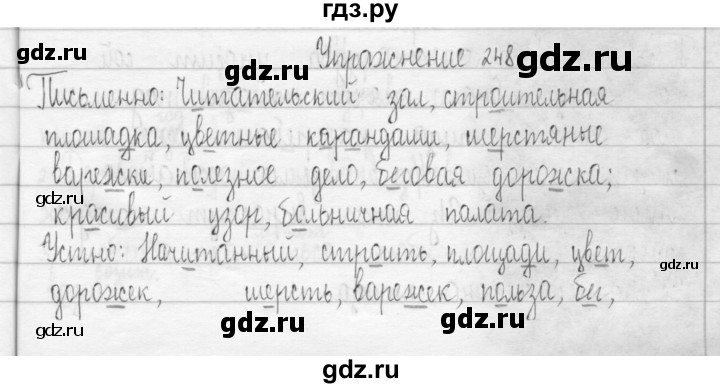 гдз.ру
gdz.ru gdz.ru gdz.ru
Упражнение 248
Письменно: Читательский зал, строительная
площадка, цветные карандаши, шерстяные
gdz.ru gdz.ru
варежки, полезное дело, беговая дорожка;
gdz.ru gdz.ru gdz.ru
красивый узор, больничная палата.
Устно: Начитанный, строить, площади, цвет,
gdz.ru
дорожек, шерсть, варежек, польза, бег,
gdz.ru gdz.ru gdz.ru
gdz.ru